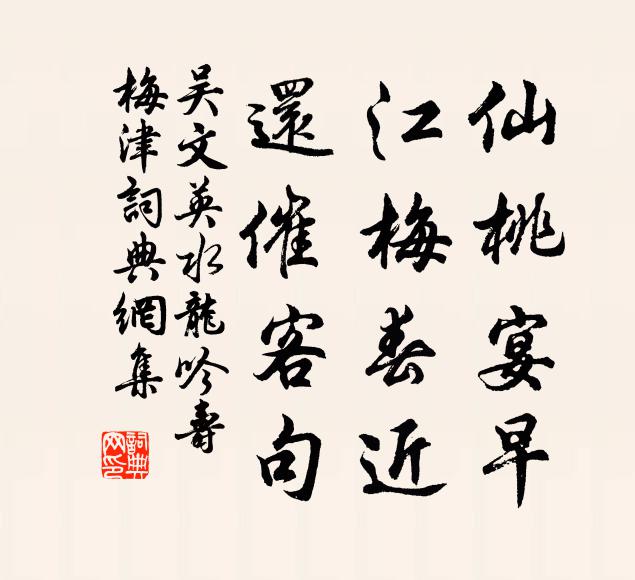 仙桃宴早
江梅春近
還催客句
吳文英水龍吟壽
梅津詞典網集
詞典網印